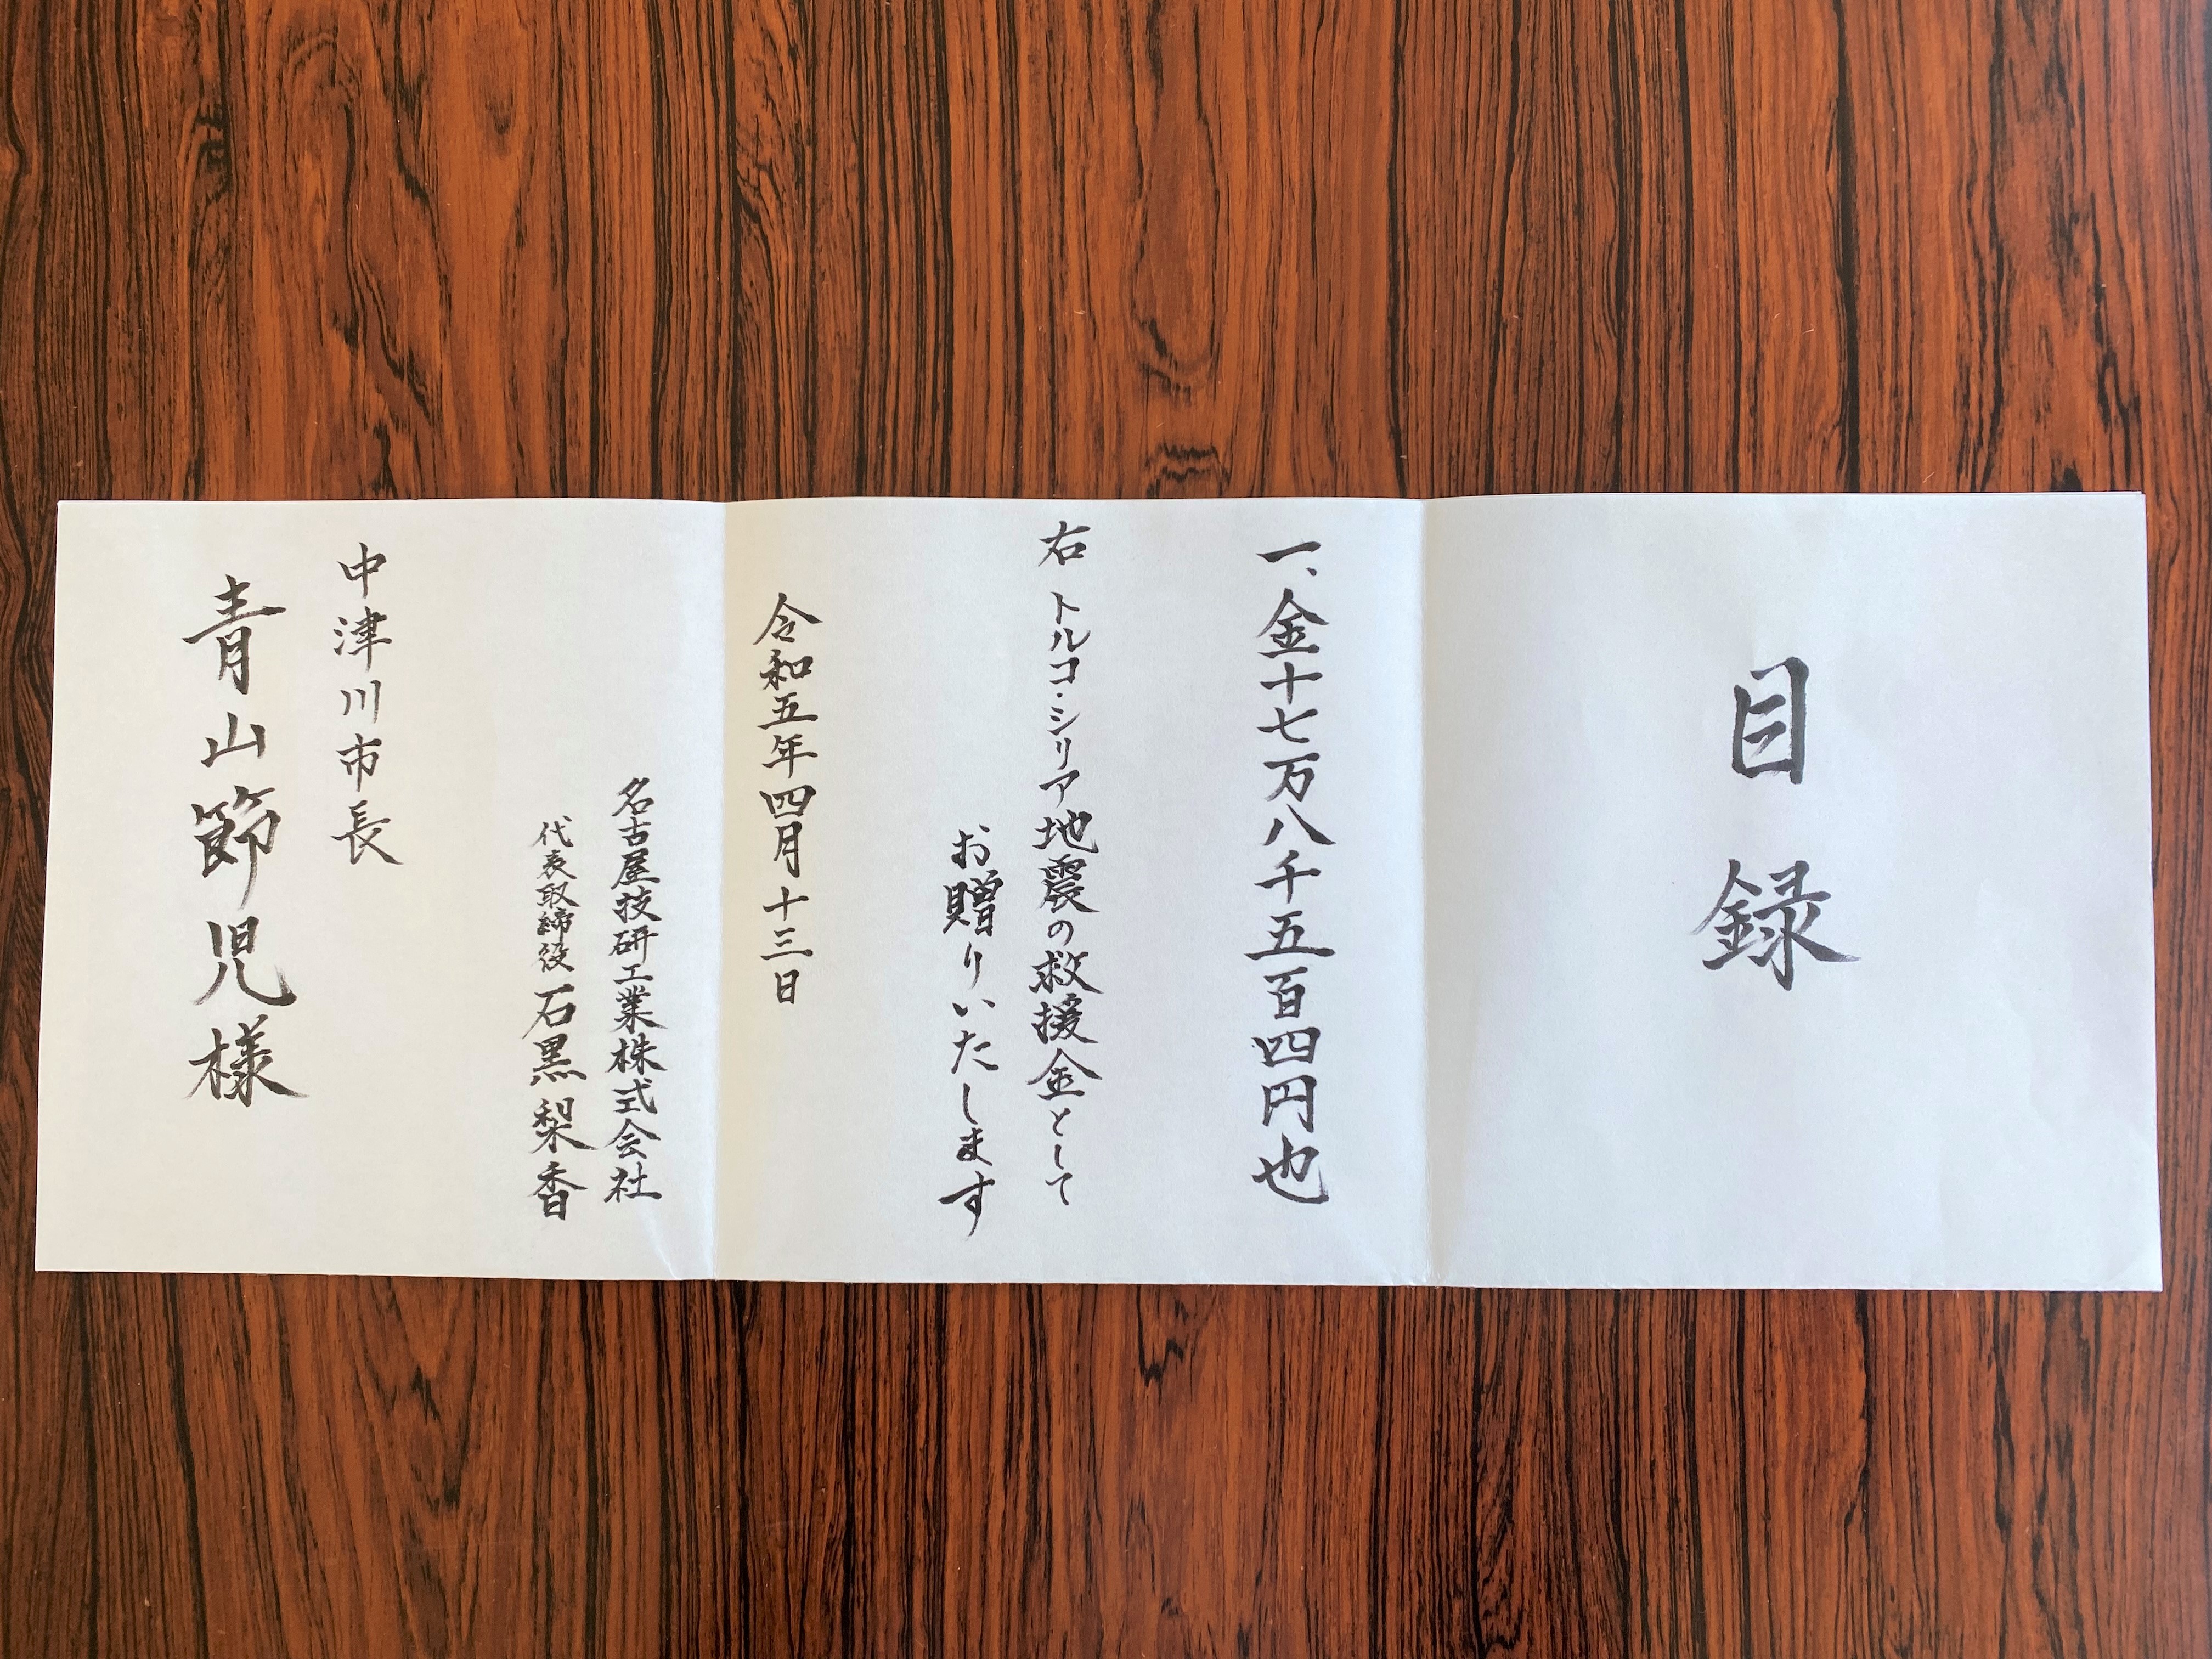 目録
一、金十七万八千五百四円也
右 トルコ・シリア地震の救援金として
お贈りいたします
令和五年四月十三日
名古屋技研工業株式会社
代表取締役 石黒 梨香
中津川市長
青山節児様